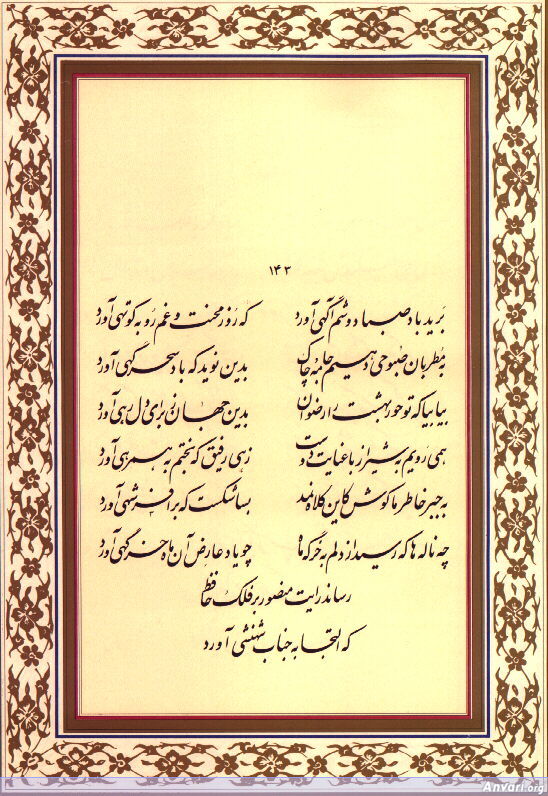 ۱۴۳
برید باد صبا دوشم آگهی آورد که روز محنت و غم رو به کوتهی آورد
به مطربان صبوحی دهیم جامه چاک بدین نوید که باد سحرگهی آورد
بیا بیا که تو حور بهشت را رضوان بدین جهان ز برای دل رهی آورد
همی رویم به شیراز با عنایت دوست زهی رفیق که بختم به همرهی آورد
به جبر خاطر ما کوش کاین کلاه نمد بسا شکست که بر افسر شهی آورد
چه ناله ها که رسید از دلم به خرگه ماه چو یاد عارض آن ماه خرگهی آورد
رساند رایت منصور بر فلک حافظ
که التجا به جناب شهنشهی آورد
Anvari.org